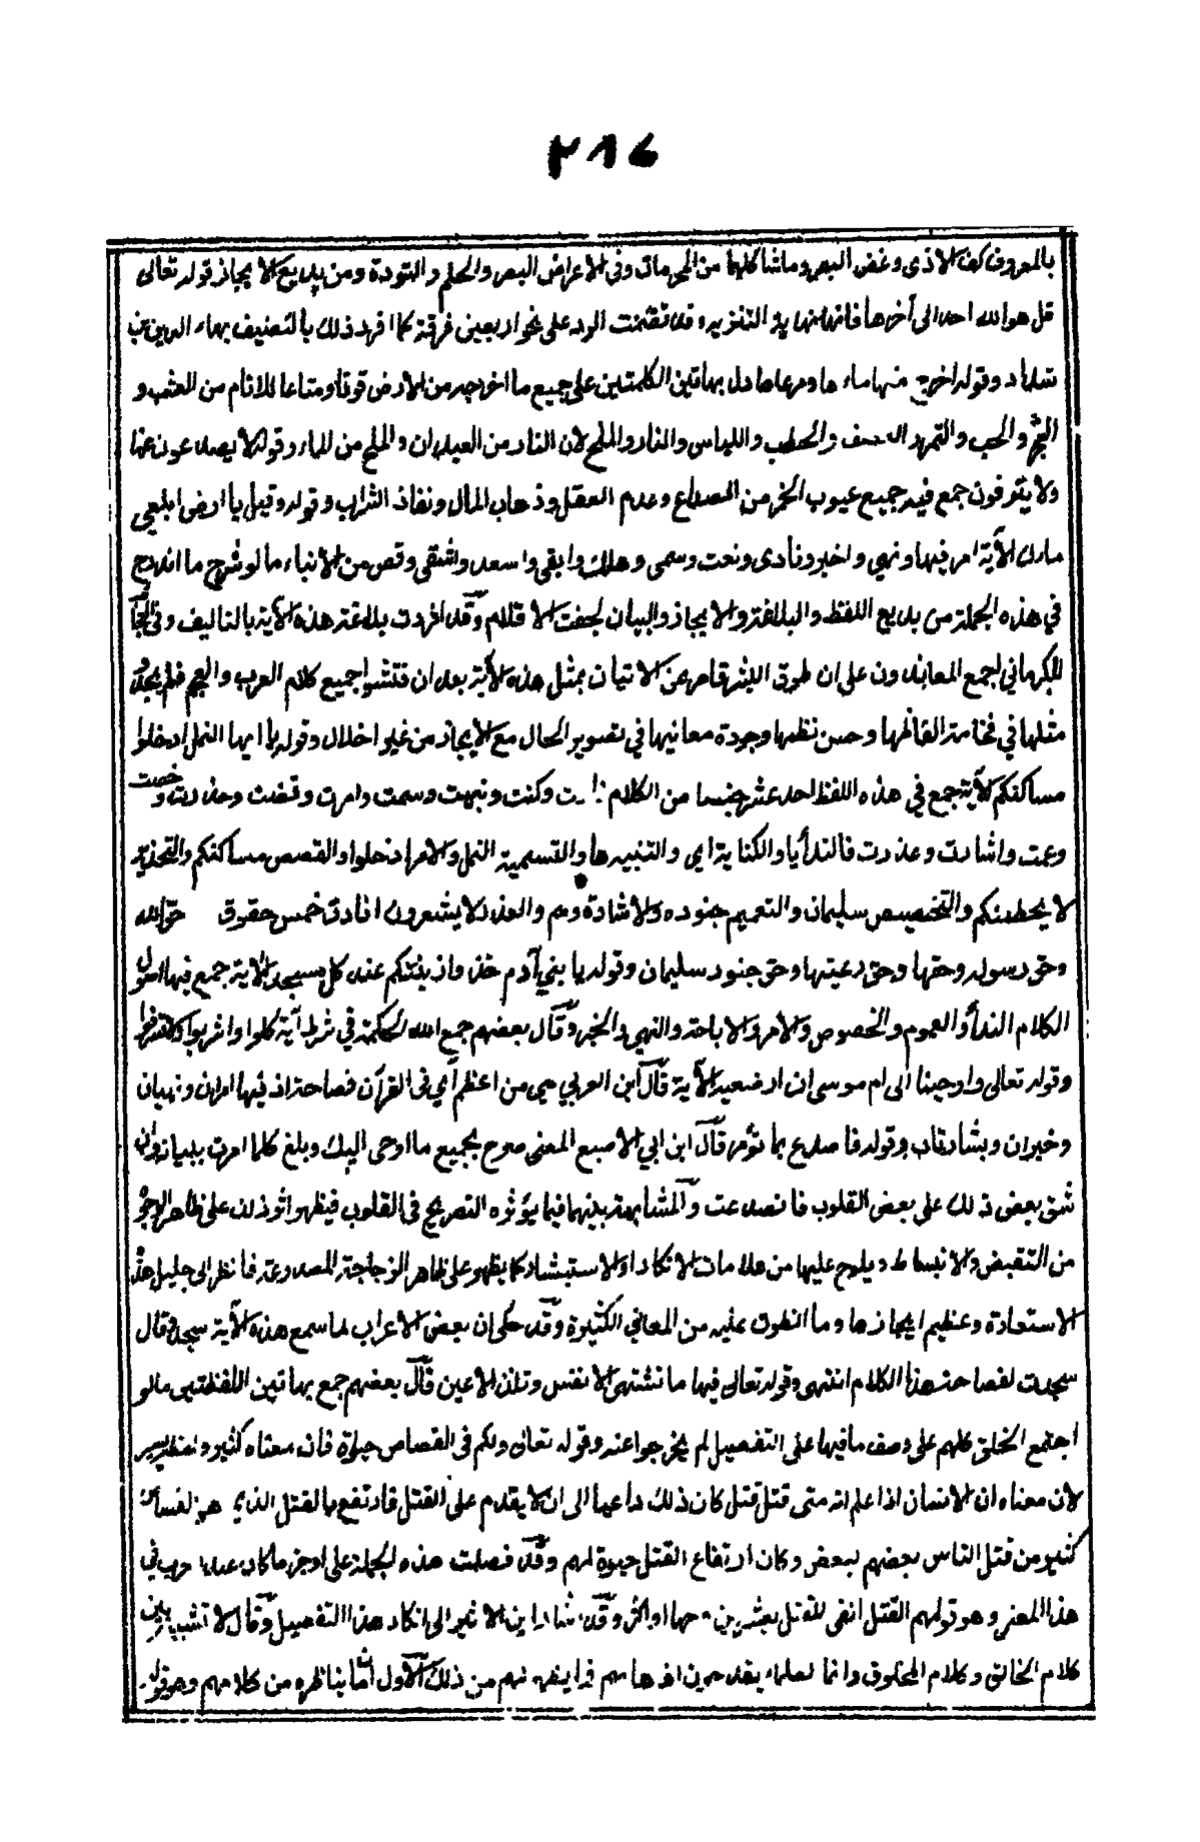 ٣١٤
بالمعروف كف الاذى وغض البصر وماشاكلهما من المحرمات وفي الاعراض الصبر والحلم والتودة ومن بديع الايجاز قوله تعالى
قل هو الله احد الى آخرها فانها نهاية التنزيه وقد تضمنت الرد على نحو اربعين فرقة كما افرد ذلك بالتصنيف بهاء الدين بن
شداد وقوله اخرج منها ماءها ومرعاها دل بهاتين الكلمتين على جميع ما اخرجه من الارض قوتا ومتاعا للانام من العشب و
الشجر والحب والتمر والعصف والحطب واللباس والنار والملح لان النار من العيدان والملح من الماء وقوله لا يصدعون عنها
ولا ينزفون جمع فيه جميع عيوب الخمر من الصداع وعدم العقل وذهاب المال ونفاد الشراب وقوله وقيل يا ارض ابلعي
ماءك الآية امر فيها ونهى واخبر ونادى ونعت وسمى وهلك وابقى واسعد واشقى وقص من الانباء ما لو شرح ما اندرج
في هذه الجملة من بديع اللفظ والبلاغة والايجاز والبيان لجفت الاقلام وقد افردت بلاغة هذه الآية بالتاليف وفي العجائب
للكرماني اجمع المعاندون على ان طوق البشر قاصر عن الاتيان بمثل هذه الآية بعد ان فتشوا جميع كلام العرب والعجم فلم يجدوا
مثلها في فخامة الفاظها وحسن نظمها وجودة معانيها في تصوير الحال مع الايجاز من غير اخلال وقوله يا ايها النمل ادخلوا
مساكنكم الآية جمع في هذه اللفظ احد عشر جنسا من الكلام وكنت ونبهت وسمت وامرت وقضت وحذرت وخصت
وعمت واشارت وعذرت فالندأ يا والكناية اي والتنبيه ها والتسمية النمل والامر ادخلوا والقصص مساكنكم والتحذير
لا يحطمنكم والتخصيص سليمان والتعميم جنوده والاشارة وهم والعذر لا يشعرون افادت خمس حقوق حق الله
وحق رسوله وحقها وحق رعيتها وحق جنود سليمان وقوله يا بني آدم خذوا زينتكم عند كل مسجد الآية جمع فيها اصول
الكلام الندأ والعموم والخصوص والامر والاباحة والنهي والخبر وقال بعضهم جمع الله الحكمة في شطر آية كلوا واشربوا ولا تسرفوا
وقوله تعالى واوحينا الى ام موسى ان ارضعيه الآية قال ابن العربي هي من اعظم آي في القرآن فصاحة اذ فيها امران ونهيان
وخبران وبشارتان وقوله فاصدع بما تؤمر قال ابن ابي الاصبع المعنى صرح بجميع ما اوحى اليك وبلغ كلما امرت ببيانه وان
شق بعض ذلك على بعض القلوب فانصدعت والمشابهة بينهما فيما يؤثره التصريح في القلوب فيظهر اثر ذلك على ظاهر الوجوه
من التقبض والانبساط ويلوح عليها من علامات الانكار او الاستبشار كما يظهر على ظاهر الزجاجة المصدوعة فانظر الى جليل هذه
الاستعارة وعظيم ايجازها وما انطوت عليه من المعاني الكثيرة وقد حكى ان بعض الاعراب لما سمع هذه الآية سجد وقال
سجدت لفصاحة هذا الكلام انتهى وقوله تعالى فيها ما تشتهي الانفس وتلذ الاعين قال بعضهم جمع بهاتين اللفظتين ما لو
اجتمع الخلق كلهم على وصف ما فيها على التفصيل لم يخرجوا عنه وقوله تعالى ولكم في القصاص حياوة فان معناه كثير ولفظه يسير
لان معناه ان الانسان اذا علم انه متى قتل قتل كان ذلك داعيا الى ان لا يقدم على القتل فارتفع بالقتل الذي هو القصاص
كثير من قتل الناس بعضهم لبعض وكان ارتفاع القتل حيوة لهم وقد فضلت هذه الجملة على اوجز ما كان عند العرب في
هذا المعنى وهو قولهم القتل انفى للقتل بعشرين وجها او اكثر وقد اشار ابن الاثير الى انكار هذا التفضيل وقال لا تشبيه بين
كلام الخالق وكلام المخلوق وانما العلماء يقدحون اذهانهم فيما يظهر لهم من ذلك الاول ان ما يناظره من كلامهم وهو قوله